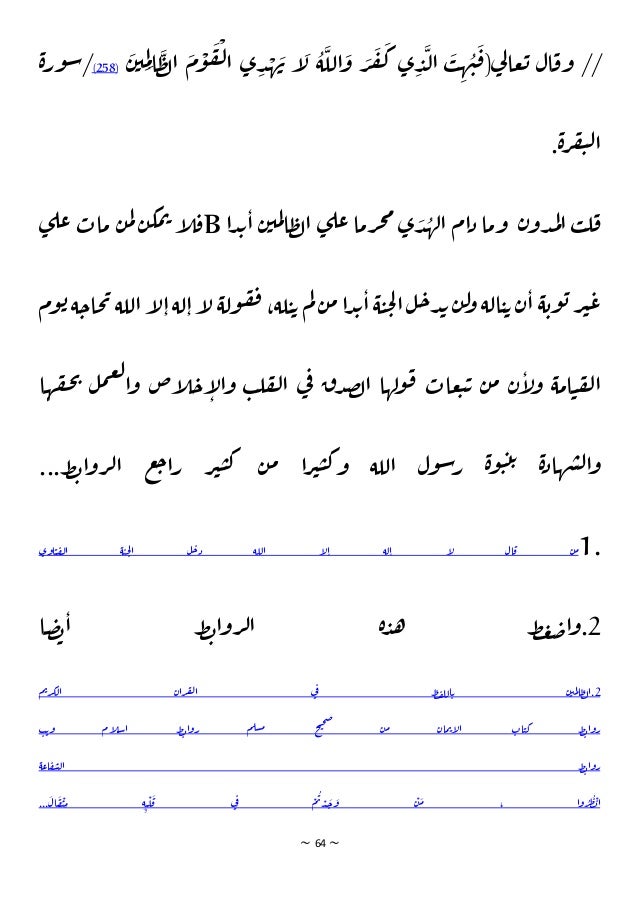 // وقال تعالي(فَبُهِتَ الَّذِي كَفَرَ وَاللَّهُ لَا يَهْدِي الْقَوْمَ الظَّالِمِينَ (258)/سورة
البقرة.
قلت المدون وما دام الهُدَي محرما علي الظالمين أبدا B فلا يمكن لمن مات علي
غير توبة أن يناله ولن يدخل الجنة أبدا من لم ينله، فقولة لا إله إلا الله تحاجه يوم
القيامة ولأن من تبعات قولها الصدق في القلب والإخلاص والعمل بحقها
والشهادة بنبوة رسول الله وكثيرا من كثير راجع الروابط...
1. من قال لا اله الا الله دخل الجنة الفتاوي
2.واضغط هذه الروابط أيضا
2.الظالمين باللفظ في القران الكريم
روابط كتاب الايمان من صحيح مسلم روابط اسلام ويب
روابط الشفاعة
انْظُرُوا ، مَنْ وَجَدْتُمْ فِي قَلْبِهِ مِثْقَالَ...
~ 64 ~